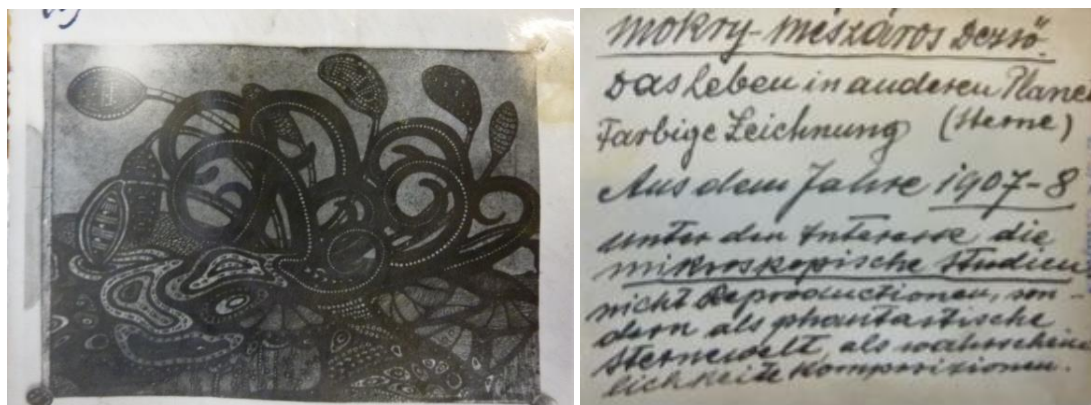 Mokry-Mészáros Dezső.
Das Leben in anderen Plane
Farbige Zeichnung (Sterne)
Aus dem Jahre 1907-8
unter den Interesse die
mikroskopische Studien
nicht Reproductionen, son-
dern als phantastische
Sternewelt, als wahrschein
lichkeits Kompozizionen.